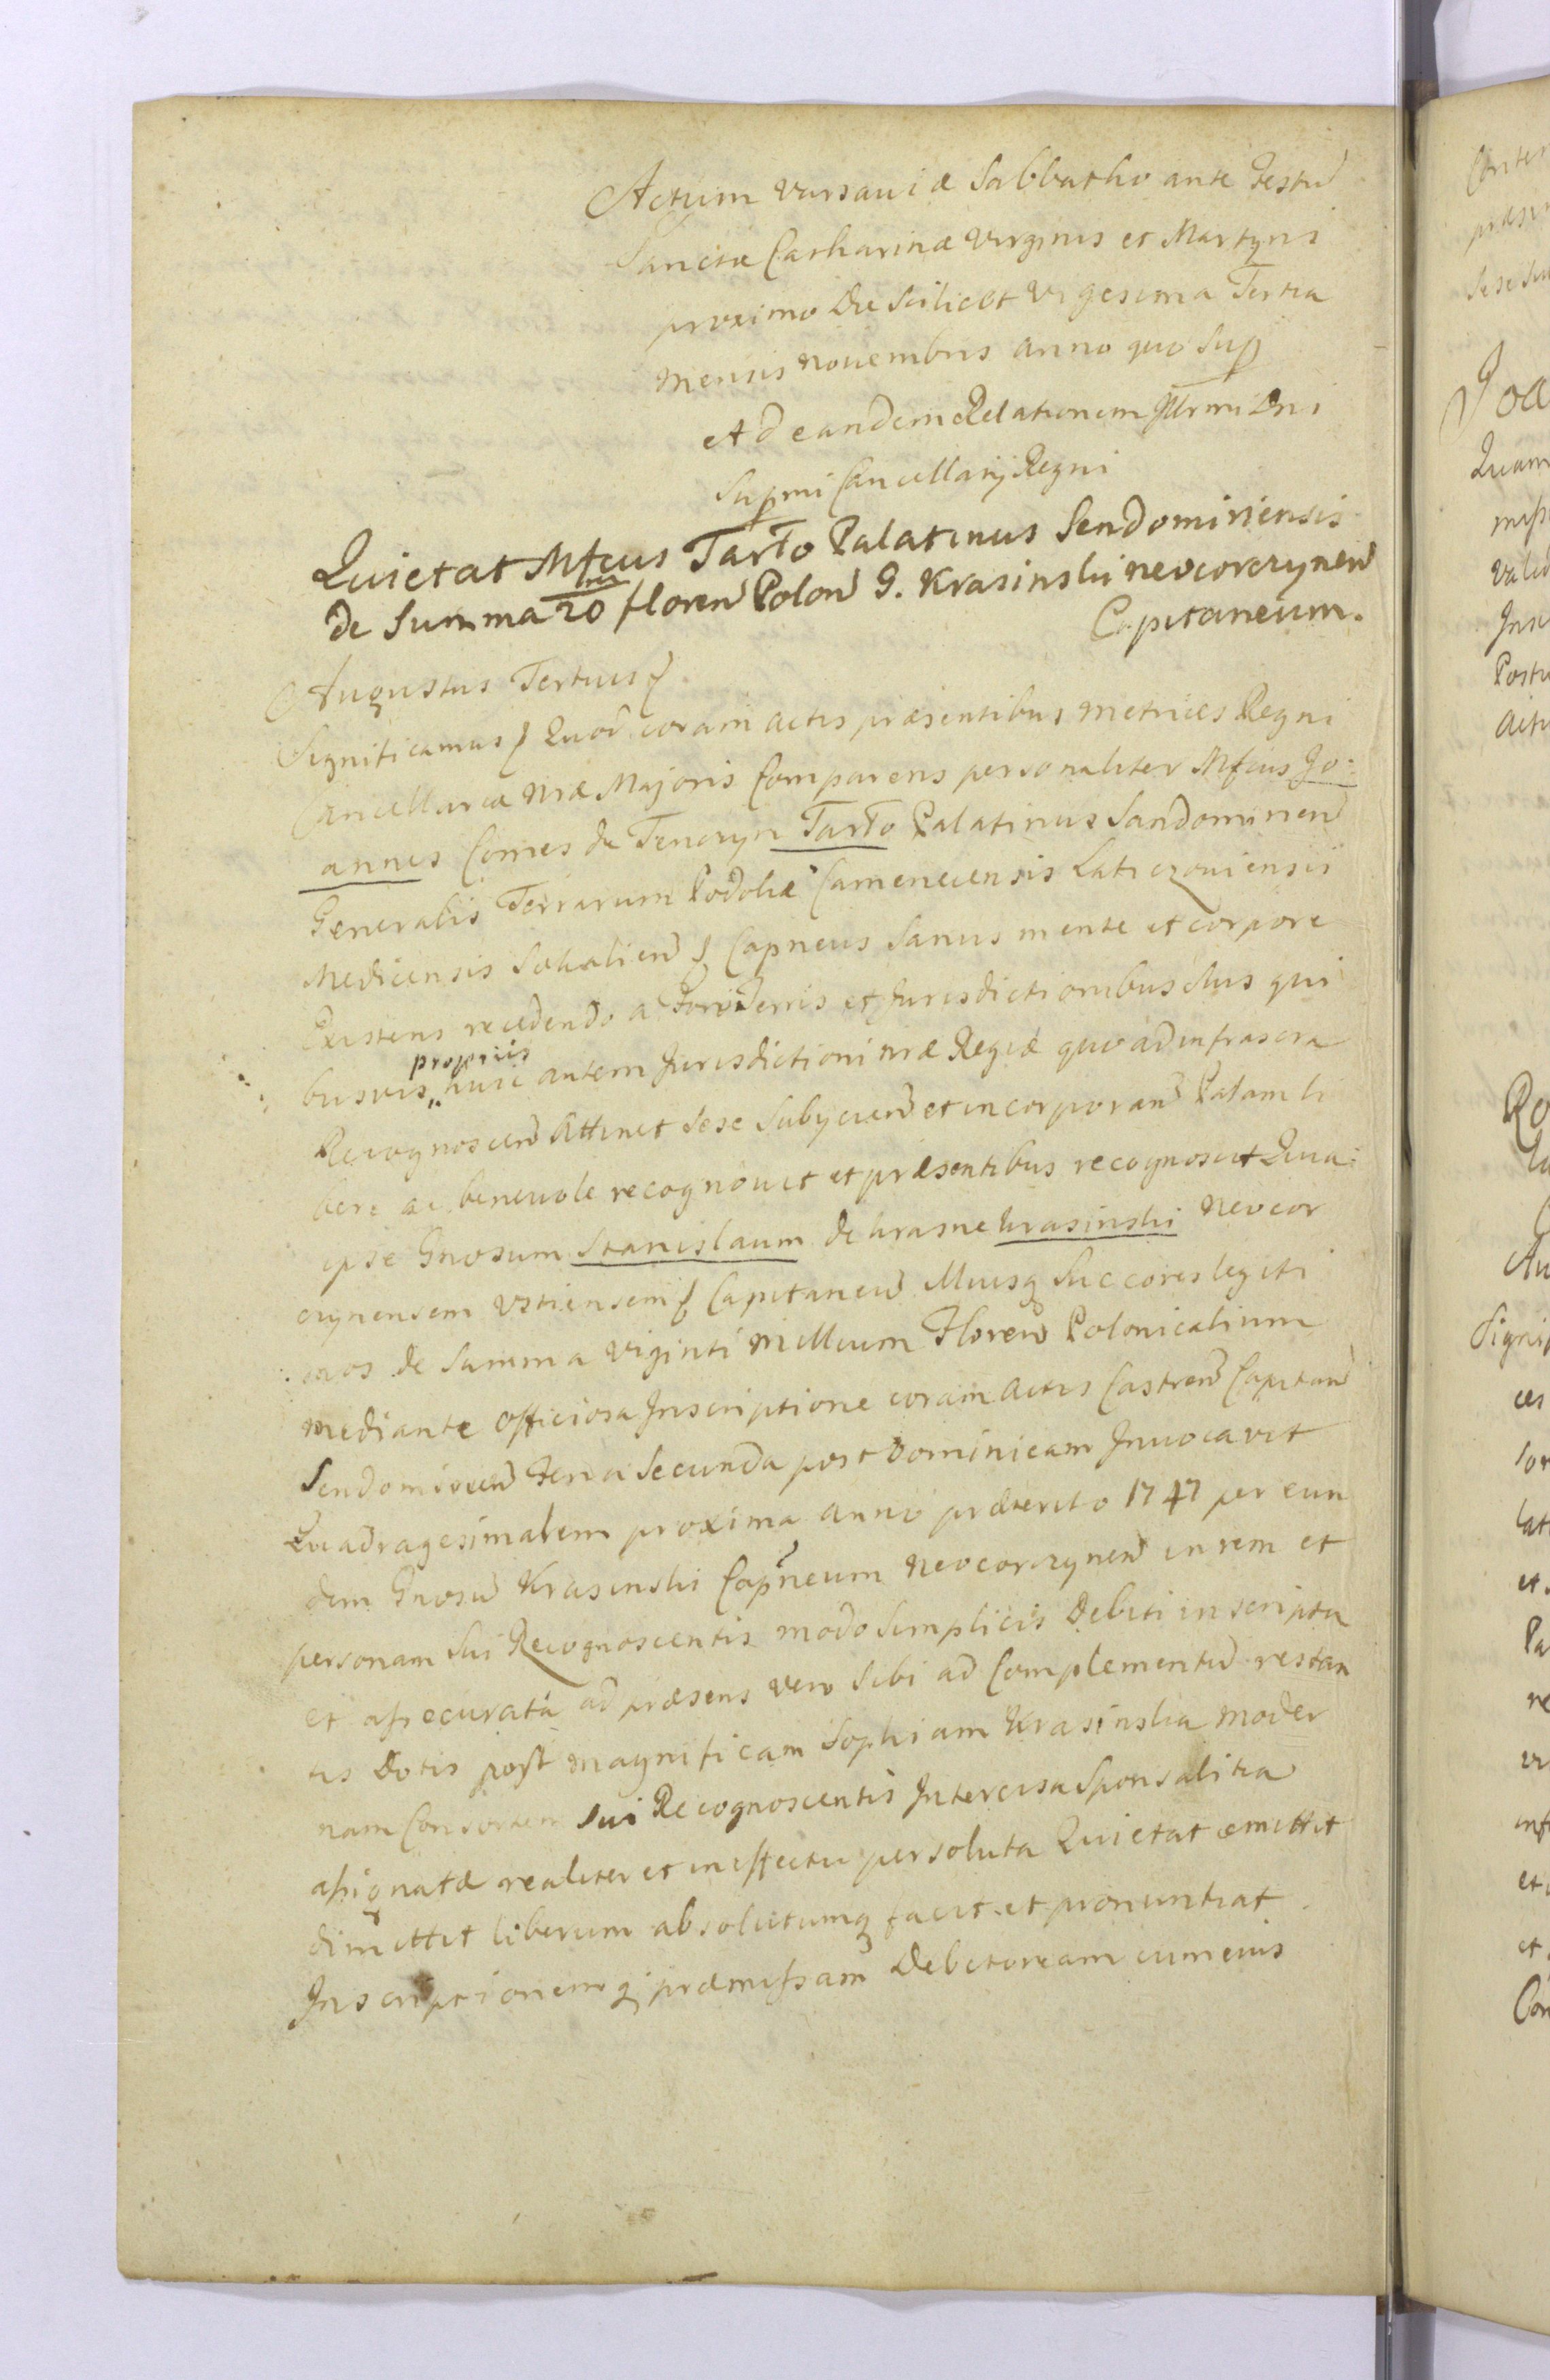 Actum Varsaviæ Sabbatho ante Festũ
Sanctæ Catharinæ Virginis et Martyris
proximo Die Scilicet Vigesima Tertia
Mensis Novembris anno quo Sup
Ad eandem Relationem Illrmi Dni
Supmi Cancellarij Regni
Quietat Mfcus Tarło Palatinus Sendomiriensis
de Summa 20 m floren Polon G. Krasinski neocorczynen
Capitaneum.
Augustus Tertius
Significamus Quod coram actis præsentibus Metrices Regni
Cancellariæ Nræ Majoris Comparens personaliter Mfcus Jo:
annes Comes de Tenczyn Tarło Palatinus Sandomirien
Generalis Terrarum Podoliæ Camenecensis Latyczoviensis
Medicensis Sokalien Capneus Sanus mente et corpore
Existens recedendo a Foro Terris et Jurisdictionibus Suis qui
busvis propriis huic autem Jurisdictioni nræ Regiæ quo ad infrascra
Recognoscen Attinet Sese Subycien et incorporan Palam li
bere ac benevole recognovit et præsentibus recognoscit Quia:
ipse Gnosum Stanislaum de Krasne Krasinski Neocor
czynensem Ustiensem Capitaneũ Illiusq Succores legiti
mos de Summa Viginti Millium Floren Polonicalium
mediante officiosa Inscriptione coram Actis Castren Capitan
Sendomirien Feria Secunda post Dominicam Invocavit
Quadragesimalem proxima anni præterito 1747 per eun
dem Gnosũ Krasinski Capneum Neocorczynen in rem et
personam Sui Recognoscentis modo Simplicis Debiti inscripta
et assecurata ad præsens vero Sibi ad Complementũ restan
tis Dotis post Magnificam Sophiam Krasinska Moder
nam Consortem Sui Recognoscentis Intercisa Sponsalitia
assignatæ realiter et in effectu persoluta Quietat emittit
dimittit liberum absolutumq facit et pronuntiat
Inscriptionemq præmissam Debitoream cum eius